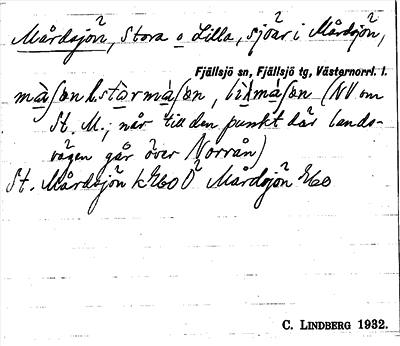 Mårdsjön, Stora o Lilla, sjöar i Mårdsjön,
Fjällsjö sn, Fjällsjö tg, Västernorrl. l.
(NV om
St. M., når till den punkt där lands-
vägen går över Norrån)
St. Mårdsjön k E60 Ö Mårdsjön E60
C. LINDBERG 1932.